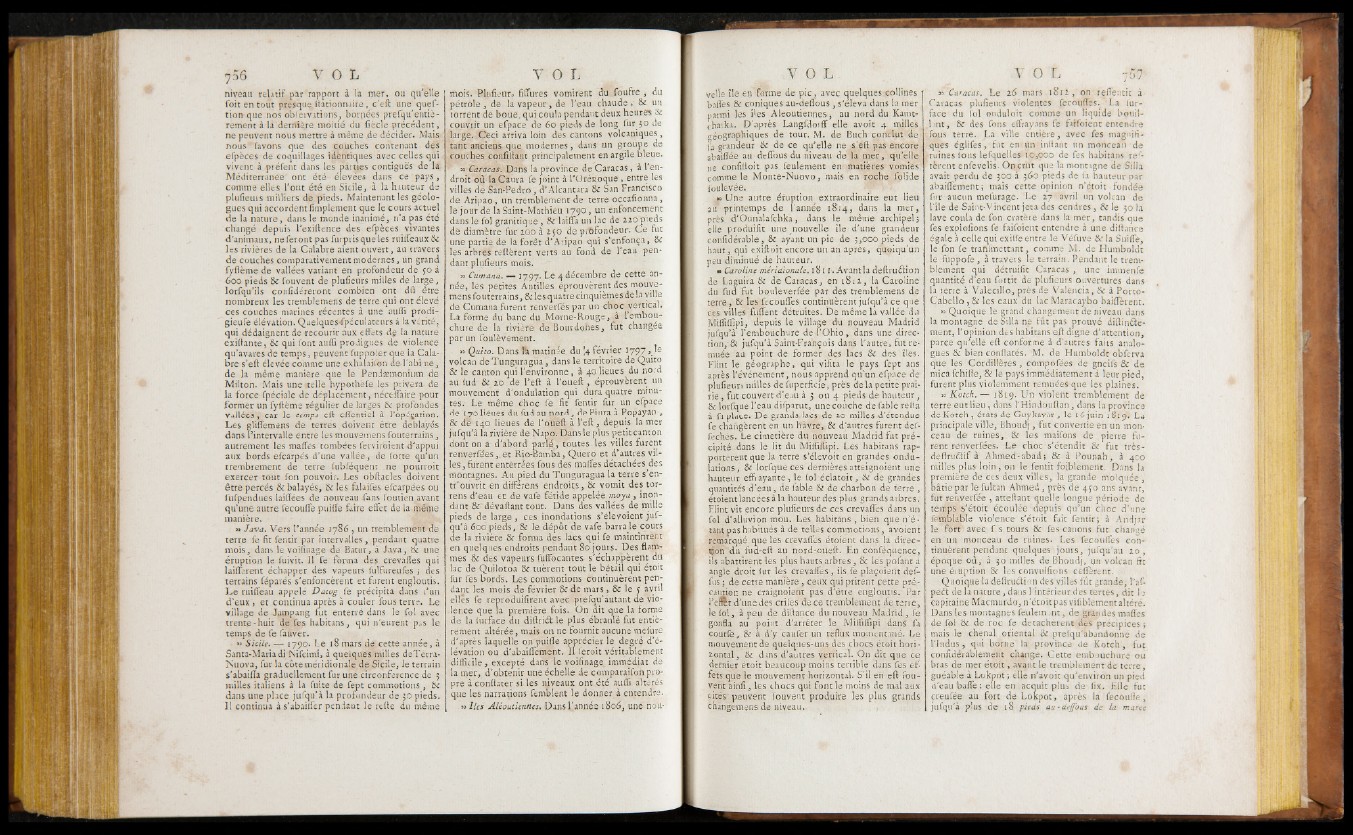 756 VOL VOL
niveau relatif par rapport à la mer, ou qu'elle
soit en tout presque stationnaire, c'est une ques-
tion que nos observations, bornées presqu'entiè-
rement à la dernière moitié du siècle précédent,
ne peuvent nous mettre à même de décider. Mais
nous savons que des couches contenant des
espèces de coquillages identiques avec celles qui
vivent à présent dans les parties contiguës de la
Méditerranée ont été élevées dans ce pays,
comme elles l'ont été en Sicile, à la hauteur de
plusieurs milliers de pieds. Maintenant les géolo-
gues qui accordent simplement que le cours actuel
de la nature, dans le monde inanimé, n'a pas été
changé depuis l'existence des espèces vivantes
d'animaux, ne seront pas surpris que les ruisseaux &
les rivières de la Calabre aient ouvert, au travers
de couches comparativement modernes, un grand
système de vallées variant en profondeur de 50 à
600 pieds & souvent de plusieurs milles de large,
lorsqu'ils considéreront combien ont dû être
nombreux les tremblemens de terre qui ont élevé
ces couches marines récentes à une aussi prodi-
gieuse élévation. Quelques spéculateurs à la vérité,
qui dédaignent de recourir aux effets de la nature
existante, & qui sont aussi prodigues de violence
qu'avares de temps, peuvent supposer que la Cala-
bre s'est élevée comme une exhalaison de l'abîme,
de la même manière que le Pendæmonium de
Milton. Mais une telle hypothèse les privera de
la force spéciale de déplacement, nécessaire pour
former un système régulier de larges & profondes
vallées, car le temps est essentiel à l'opération.
Les glissemens de terres doivent être déblayés
dans l'intervalle entre les mouvemens souterrains,
autrement les masses tombées serviroient d'appui
aux bords escarpés d'une vallée, de sorte qu'un
tremblement de terre subséquent ne pourroit
exercer tout son pouvoir. Les obstacles doivent
être percés & balayés, & les falaises escarpées ou
suspendues laissées de nouveau sans soutien avant
qu'une autre secousse puisse faire effet de la même
manière.
» Java. Vers l'année 1786, un tremblement de
terre se fit sentir par intervalles, pendant quatre
mois, dans le voisinage de Batur, à Java, & une
éruption le suivit. Il se forma des crevasses qui
laissèrent échapper des vapeurs sulfureuses; des
terrains séparés s'enfoncèrent et furent engloutis.
Le ruisseau appelé Dotog se précipita dans l'un
d'eux, et continua après à couler sous terre. Le
village de Jampang fut enterré dans le sol avec
trente-huit de ses habitans, qui n'eurent pas le
temps de se sauver.
» Sicile. — 1790. Le 18 mars de cette année, à
Santa-Maria di Niscimi, à quelques milles de Terra-
Nuova, sur la côte méridionale de Sicile, le terrain
s'abaissa graduellement sur une circonférence de 3
milles italiens à la suite de sept commotions, &
dans une place jusqu'à la profondeur de 30 pieds.
Il continua à s'abaisser pendant le reste du même
mois. Plusieurs fissures vomirent du soufre, du
pétrole, de la vapeur, de l'eau chaude, & un
torrent de boue, qui coula pendant deux heures &
couvrit un espace de 60 pieds de long sur 30 de
large. Ceci arriva loin des cantons volcaniques,
tant anciens que modernes, dans un groupe de
couches consistant principalement en argile bleue.
» Caracas. Dans la province de Caracas, à l'en-
droit où la Caura se joint à l'Orénoque, entre les
villes de San-Pedro, d'Alcantara & San Francisco
de Aripao, un tremblement de terre occasionna,
le jour de la Saint-Mathieu 1790, un enfoncement
dans le sol granitique, & laissa un lac de 220 pieds
de diamètre sur 200 à 250 de profondeur. Ce fut
une partie de la forêt d'Aripao qui s'enfonça, &
les arbres restèrent verts au fond de l'eau pen-
dant plusieurs mois.
» Cumana. — 1797. Le 4 décembre de cette an-
née, les petites Antilles éprouvèrent des mouve-
mens souterrains, & les quatre cinquièmes de la ville
de Cumana furent renversés par un choc vertical.
La forme du banc du Morne-Rouge, à l'embou-
chure de la rivière de Bourdones, fut changée
par un soulèvement.
» Quito. Dans la matinée du 4 février 1797, le
volcan de Tunguragua, dans le territoire de Quito
& le canton qui l'environne, à 40 lieues du nord
au sud & 20 de l'est à l'ouest, éprouvèrent un
mouvement d'ondulation qui dura quatre minu-
tes. Le même choc se fit sentir sur un espace
de 170 lieues du sud au nord, de Piura à Popayan,
& de 140 lieues de l'ouest à l'est, depuis la mer
jusqu'à la rivière de Napo. Dans le plus petit canton
dont on a d'abord parlé, toutes les villes furent
renversées, et Rio-Bamba, Quero et d'autres vil-
les, furent enterrées sous des masses détachées des
montagnes. Au pied du Tunguragua la terre s'en-
tr'ouvrit en différens endroits, & vomit des tor-
rens d'eau et de vase fétide appelée moya, inon-
dant & dévastant tout. Dans des vallées de mille
pieds de large, ces inondations s'élevoient jus-
qu'à 600 pieds, & le dépôt de vase barra le cours
de la rivière & forma des lacs qui se maintinrent
en quelques endroits pendant 80 jours. Des flam-
mes & des vapeurs suffocantes s'échappèrent du
lac de Quilotoa & tuèrent tout le bétail qui étoit
sur ses bords. Les commotions continuèrent pen-
dant les mois de février & de mars, & le 5 avril
elles se reproduisirent avec presqu'autant de vio-
lence que la première fois. On dit que la forme
de la surface du district le plus ébranlé fut entiè-
rement altérée, mais on ne fournit aucune mesure
d'après laquelle on puisse apprécier le degré d'é-
lévation ou d'abaissement. Il seroit véritablement
difficile, excepté dans le voisinage immédiat de
la mer, d'obtenir une échelle de comparaison pro-
pre à constater si les niveaux ont été aussi altérés
que les narrations semblent le donner à entendre.
» Iles Aléoutiennes. Dans l'année 1806, une nou-
VOL VOL 757
velle île en forme de pic, avec quelques collines
basses & coniques au-dessous, s'éleva dans la mer
parmi les îles Aleoutiennes, au nord du Kamt-
chatka. D'après Langsdorff elle avoit 4 milles
géographiques de tour. M. de Buch conclut de
la grandeur & de ce qu'elle ne s'est pas encore
abaissée au dessous du niveau de la mer, qu'elle
ne consistoit pas seulement en matières vomies
comme le Monte-Nuovo, mais en roche solide
soulevée.
» Une autre éruption extraordinaire eut lieu
au printemps de l'année 1814, dans la mer,
près d'Ounalaschka, dans le même archipel;
elle produisit une nouvelle île d'une grandeur
considérable, & ayant un pic de 3,000 pieds de
haut, qui existoit encore un an après, quoiqu'un
peu diminué de hauteur.
» Caroline méridionale. 1811. Avant la destruction
de Laguira & de Caracas, en 1812, la Caroline
du sud fut bouleversée par des tremblemens de
terre, & les secousses continuèrent jusqu'à ce que
ces villes fussent détruites. De même la vallée du
Mississipi, depuis le village du nouveau Madrid
jusqu'à l'embouchure de l'Ohio, dans une direc-
tion, & jusqu'à Saint-François dans l'autre, fut re-
muée au point de former des lacs & des îles.
Flint le géographe, qui visita le pays sept ans
après l'événement, nous apprend qu'un espace de
plusieurs milles de superficie, près de la petite prai-
rie, fut couvert d'eau à 3 ou 4 pieds de hauteur,
& lorsque l'eau disparut, une couche de sable resta
à sa place. De grands lacs de 20 milles d'étendue
se changèrent en un hâvre, & d'autres furent des-
séchés. Le cimetière du nouveau Madrid fut pré-
cipité dans le lit du Mississipi. Les habitans rap-
portèrent que la terre s'élevoit en grandes ondu-
lations, & lorsque ces dernières atteignoient une
hauteur effrayante, le sol éclatoit, & de grandes
quantités d'eau, de sable & de charbon de terre,
étoient lancées à la hauteur des plus grands arbres.
Flint vit encore plusieurs de ces crevasses dans un
sol d'alluvion mou. Les habitans, bien que n'é-
tant pas habitués à de telles commotions, avoient
remarqué que les crevasses étoient dans la direc-
tion du sud-est au nord-ouest. En conséquence,
ils abattirent les plus hauts arbres, & les posant à
angle droit sur les crevasses, ils se plaçoient des-
sus; de cette manière, ceux qui prirent cette pré-
caution ne craignoient pas d'être engloutis. Par
l'effet d'une des crises de ce tremblement de terre,
le sol, à peu de distance du nouveau Madrid, se
gonfla au point d'arrêter le Mississipi dans sa
course, & à d'y causer un reflux momentané. Le
mouvement de quelques-uns des chocs étoit hori-
zontal, & dans d'autres vertical. On dit que ce
dernier étoit beaucoup moins terrible dans ses ef-
fets que le mouvement horizontal. S'il en est sou-
vent ainsi, les chocs qui font le moins de mal aux
cités peuvent souvent produire les plus grands
changemens de niveau.
» Caracas. Le 26 mars 1812, on ressentit à
Caracas plusieurs violentes secousses. La sur-
face du sol onduloit comme un liquide bouil-
lant, & des sons effrayans se faisoient entendre
sous terre. La ville entière, avec ses magnifi-
ques églises, fut en un instant un monceau de
ruines sous lesquelles 10,000 de ses habitans res-
tèrent ensevelis. On crut que la montagne de Silla
avoit perdu de 300 à 360 pieds de sa hauteur par
abaissement; mais cette opinion n'étoit fondée
sur aucun mesurage. Le 27 avril un volcan de
l'île de Saint-Vincent jeta des cendres, & le 30 la
lave coula de son cratère dans la mer, tandis que
ses explosions se faisoient entendre à une distance
égale à celle qui existe entre le Vésuve & la Suisse,
le son se transmettant, comme M. de Humboldt
le suppose, à travers le terrain. Pendant le trem-
blement qui détruisit Caracas, une immense
quantité d'eau sortit de plusieurs ouvertures dans
la terre à Valecillo, près de Valencia, & à Porto-
Cabello, & les eaux du lac Maracaybo baissèrent.
» Quoique le grand changement de niveau dans
la montagne de Silla ne fût pas prouvé distincte-
ment, l'opinion des habitans est digne d'attention,
parce qu'elle est conforme à d'autres faits analo-
gues & bien constatés. M. de Humboldt observa
que les Cordillères, composées de gneifs & de
mica schiste, & le pays immédiatement à leur pied,
furent plus violemment remuées que les plaines.
» Kotch. — 1819. Un violent tremblement de
terre eut lieu, dans l'Hindoustan, dans la province
de Kotch, états de Guykwar, le 16 juin 1819. La
principale ville, Bhoudj, fut convertie en un mon-
ceau de ruines, & les maisons de pierre fu-
rent renversées. Le choc s'étendit & fut très-
destructif à Ahmed-abad; & à Pounah, à 400
milles plus loin, on le sentit foiblement. Dans la
première de ces deux villes, la grande mosquée,
bâtie par le sultan Ahmed, près de 450 ans avant,
fut renversée, attestant quelle longue période de
temps s'étoit écoulée depuis qu'un choc d'une
semblable violence s'étoit fait sentir; à Andjar
le fort avec ses tours & ses canons fut changé
en un monceau de ruines. Les secousses con-
tinuèrent pendant quelques jours, jusqu'au 20,
époque où, à 30 milles de Bhoudj, un volcan fit
une éruption & les convulsions cessèrent.
Quoique la destruction des villes fût grande, l'as-
pect de la nature, dans l'intérieur des terres, dit le
capitaine Macmurdo, n'étoit pas visiblement altéré.
Dans les montagnes seulement, de grandes masses
de sol & de roc se détachèrent des précipices;
mais le chenal oriental & presqu'abandonné de
l'Indus, qui borne la province de Kotch, fut
considérablement changé. Cette embouchure ou
bras de mer étoit, avant le tremblement de terre,
guéable à Lukpot; elle n'avoit qu'environ un pied
d'eau basse: elle en acquit plus de six. Elle fut
creusée au fort de Lokpot, après la secousse,
jusqu'à plus de 18 pieds au-dessous de la marée